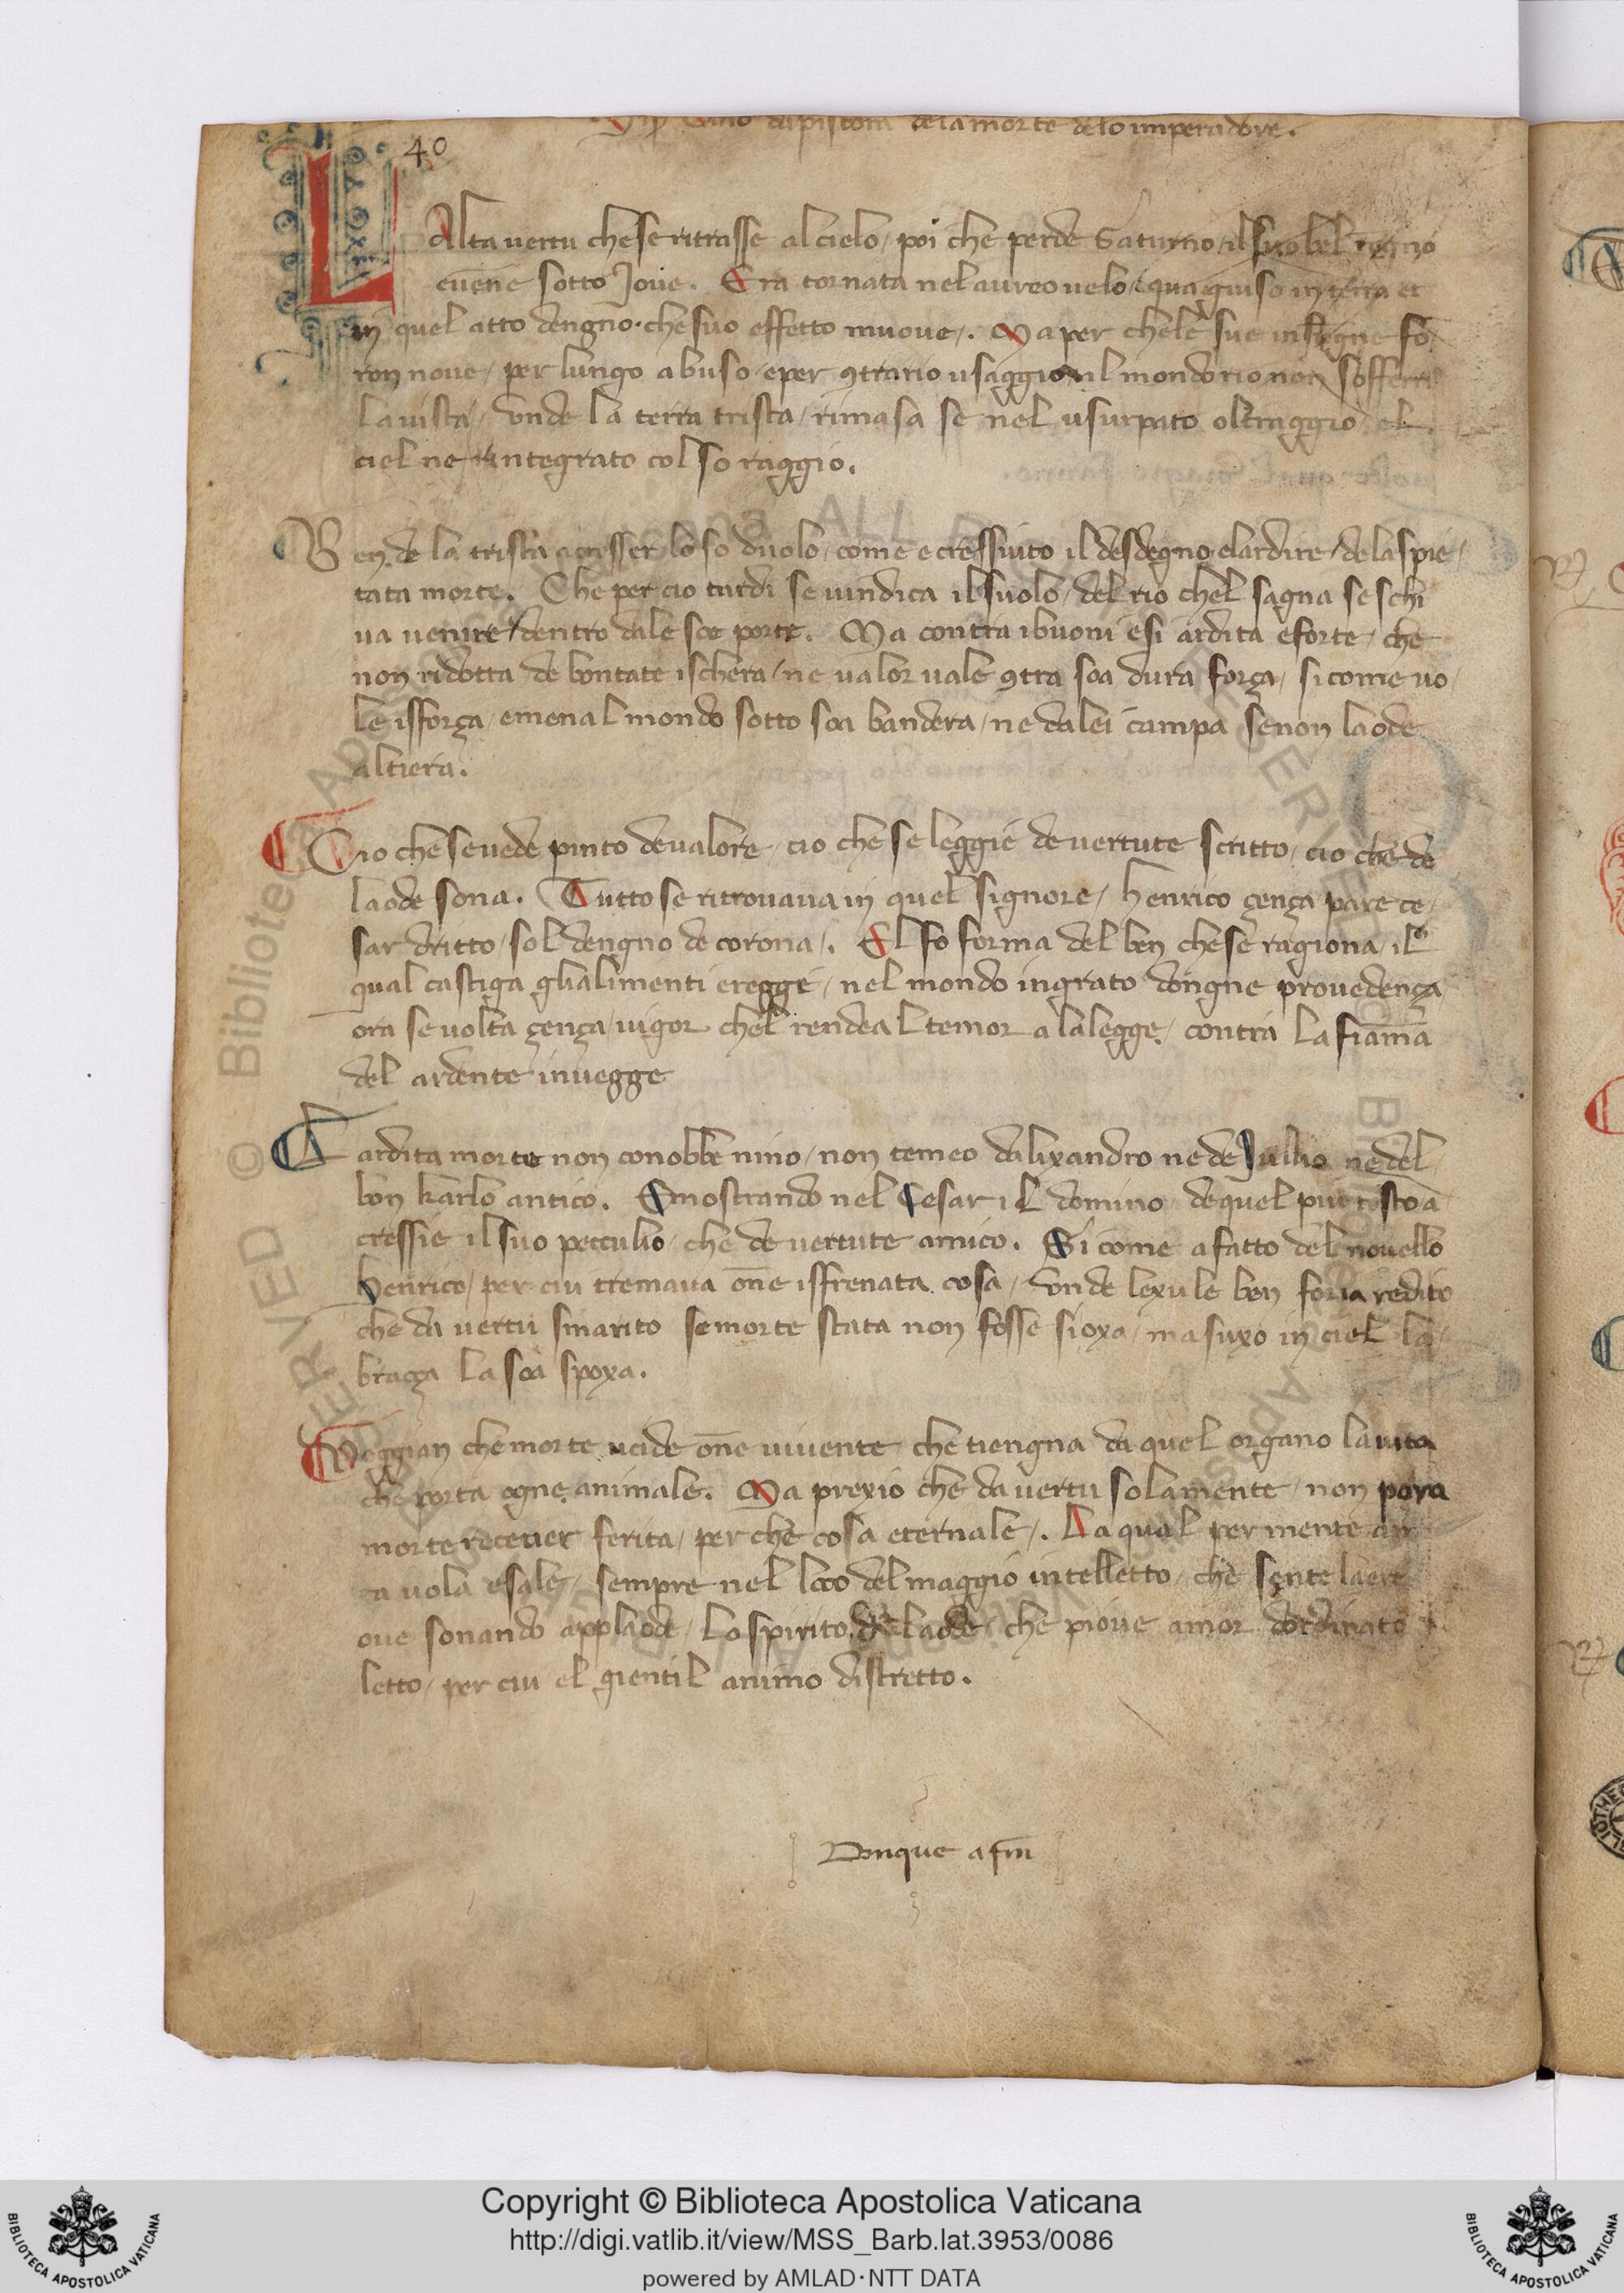 dapistoia dela morte delo imperadore.
40
L Alta uertu chese ritrasse alcielo / poi che perde Saturno / il suo bel regno
euene sotto Joue. Era tornata nel aureo uelo / qua giuso in terra et
in quel atto dengno. che suo effetto muoue /. Ma per chele sue insegne fo
ron noue / per lungo abuso / eper 9trario usaggio il mondo rio non sofferri
la uista / unde la terra trista / rimasa se nel usurpato oltraggio / el
ciel ne rintegrato col so raggio.
Ben de la trista acresser lo so duolo / come ecressiuto il desdegno elardire / de la spie /
tata morte. Che per cio tardi se uindica il suolo / del rio chel sagna se schi
ua uenire / dentro dale soe porte. Ma contra ibuoni esi ardita eforte / che
non ridotta de bontate ischera / ne ualor uale 9tra soa dura força / si come uo /
le isforça / emena l mondo sotto soa bandera / ne dalei campa senon laode
altiera.
Cio che seuede pinto deualore / cio che se leggie de uertute scritto / cio che de
laode sona. Tutto se ritrouaua in quel signore / henrico çença pare ce /
sar dritto / sol dengno de corona /. El fo forma del ben che se ragiona / il
qual castiga glialimenti eregge / nel mondo ingrato dongne prouedença
ora se uolta çença / uigor chel rendea l temor a lalegge / contra la fiama
del ardente inuegge
L ardita morte non conobbe nino / non temeo dalixandro ne de Jullio ne del
bon karlo antico. Emostrando nel Cesar il domino / dequel piu tosto a
cressie il suo pecculio / che de uertute amico. Si come a fatto del nouello
henrico / per cui tremaua one isfrenata cosa / unde lexule ben foria redito
che da uertu smarito se morte stata non fosse sioxa / ma suxo in ciel la
braça la soa spoxa.
Veggian che morte ucide one uiuente / che tiengna da quel organo la uita
che porta ogne animale. Ma prexio che da uertu solamente / non pora
morte receuer ferita / per che cosa eternale /. La qual per mente
uola esale / sempre nel loco del maggio intelletto / che sente laere
oue sonando applaode / Lo spirito de laode / che pioue amor dordinato
letto / per cui el gientil animo distretto.
Donque a fin
Copyright © Biblioteca Apostolica Vaticana
http://digi.vatlib.it/view/MSS_Barb.lat.3953/0086
powered by AMLAD·NTT DATA
BIBLIOTECA APOSTOLICA VATICANA
BIBLIOTECA APOSTOLICA VATICANA